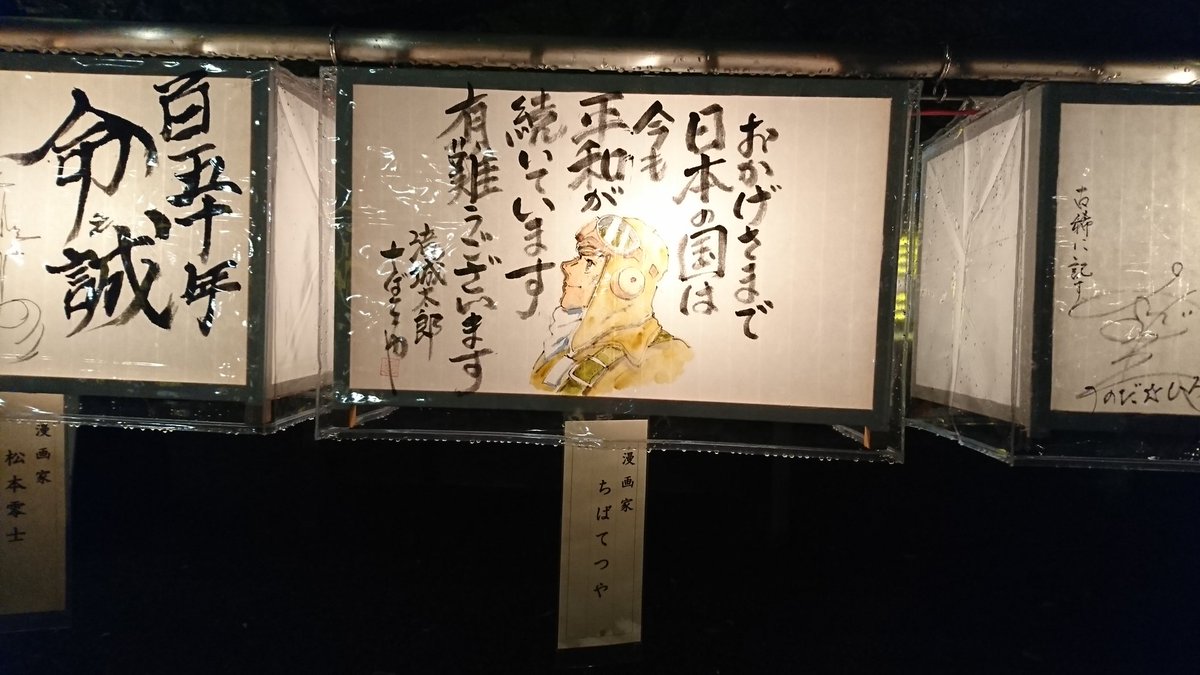 おかげさまで
日本の国は
今も
平和が
続いています
有難うございます
滝城太郎
漫画家
ちばてつや
百五十年
命
誠
漫画家
松本零士
古稀に記す